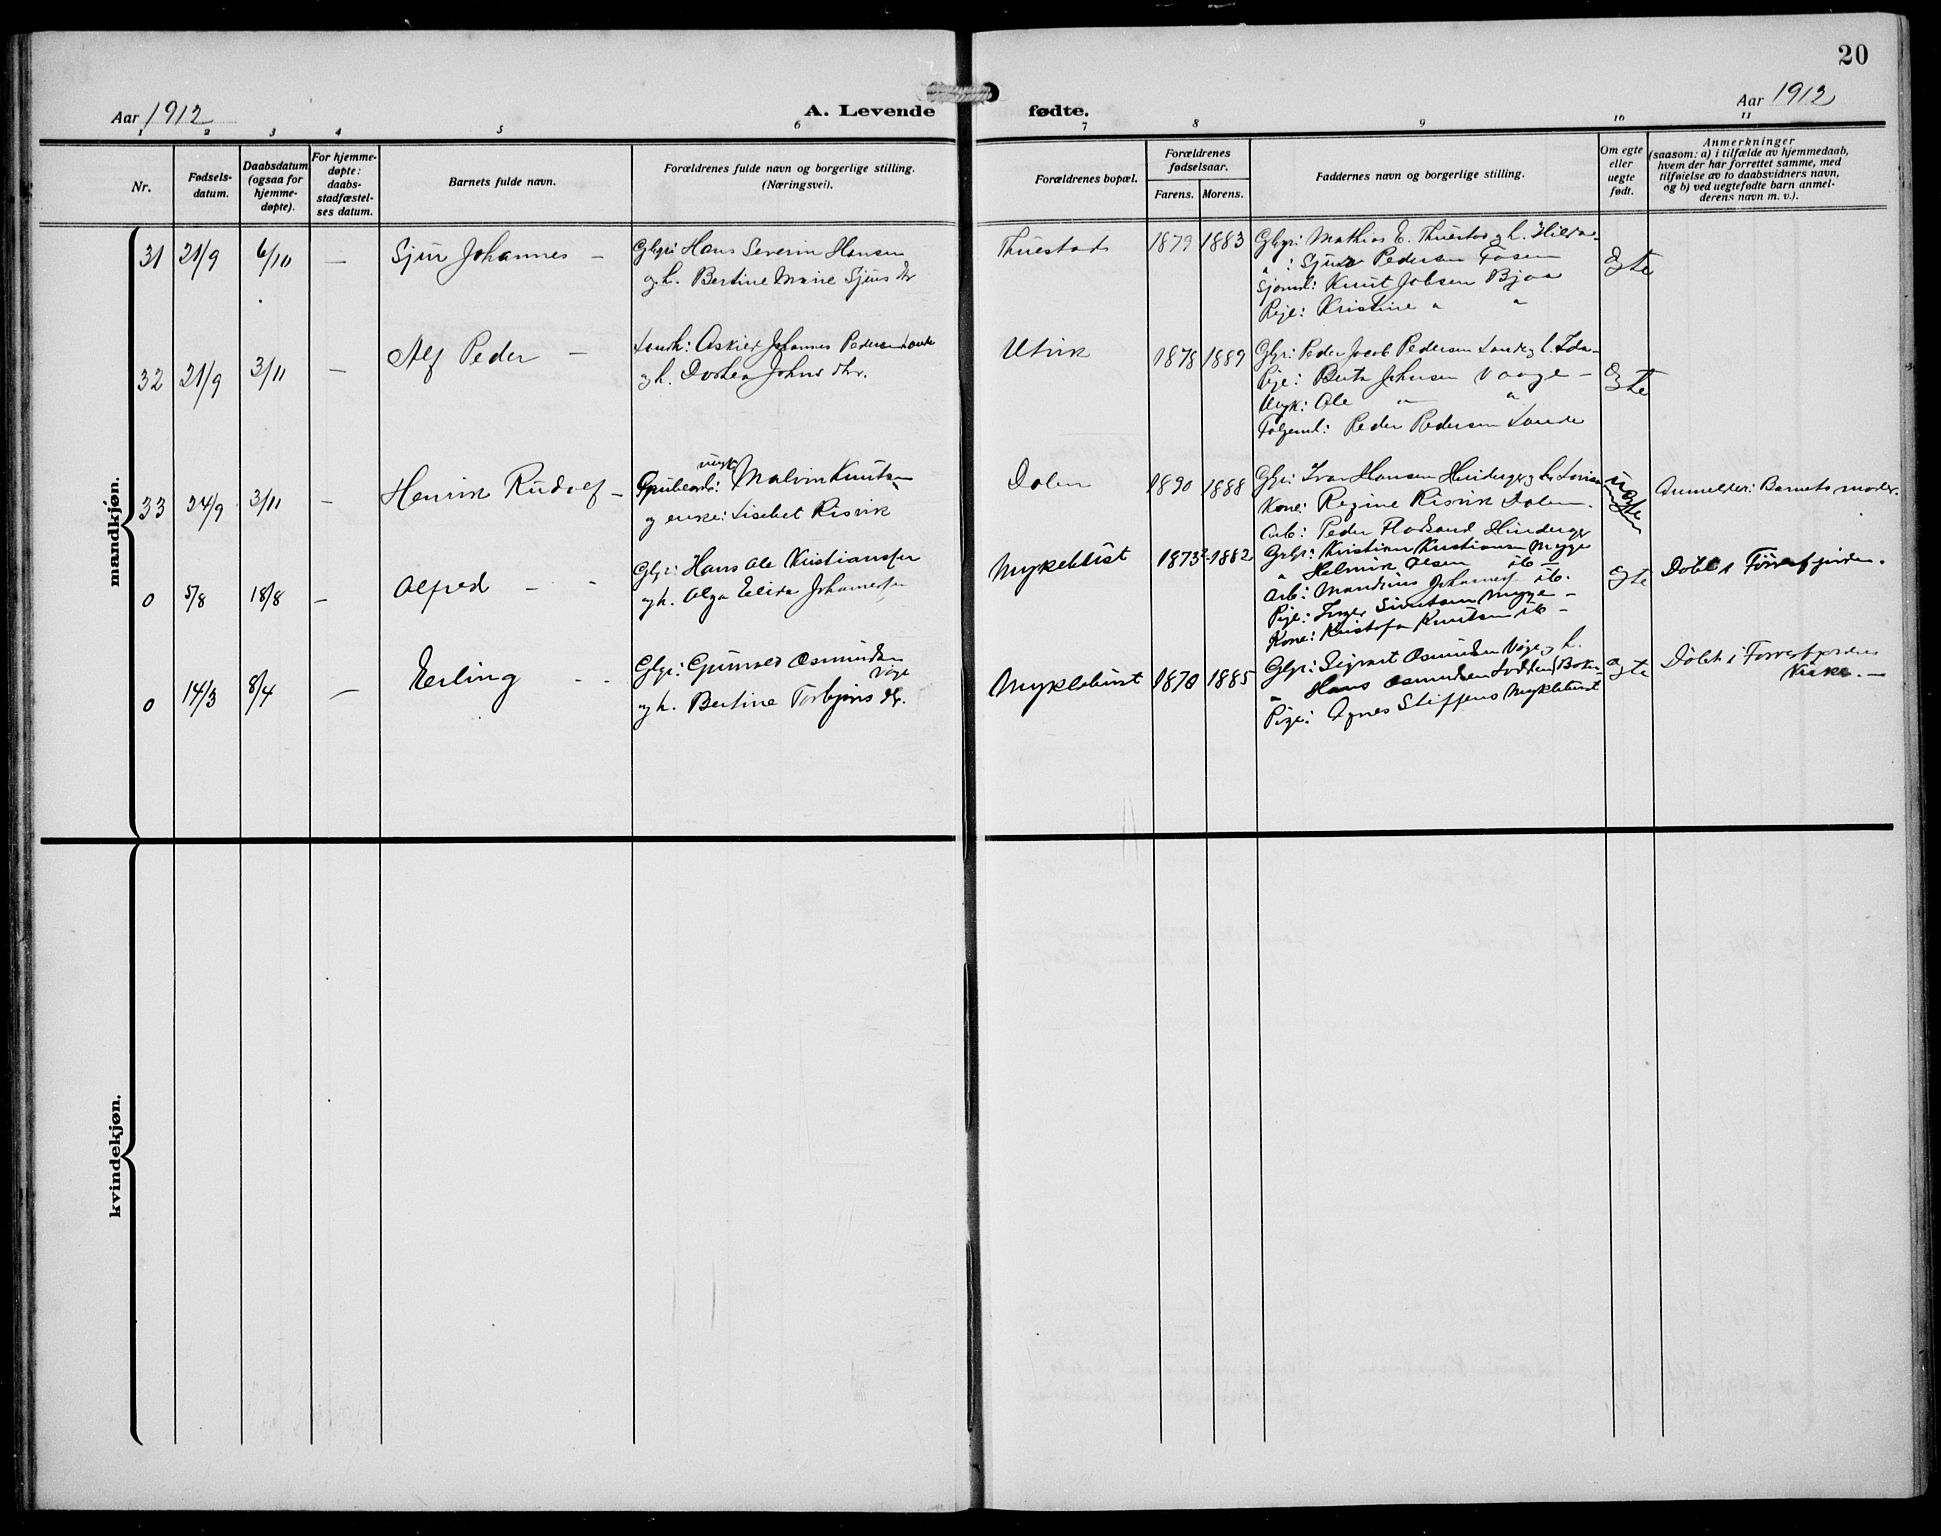 20
Aar 1912
A. Levende fødte.
Aar 1912
1 2 3 4 5 6 7 8 9 10 11
Nr.
Fødsels-
datum.
Daabsdatum
(ogsaa for
hjemme-
døpte).
For hjemme-
døpte:
daabs-
stadfæstel-
ses datum.
Barnets fulde navn.
Forældrenes fulde navn og borgerlige stilling.
(Næringsvei).
Forældrenes bopæl.
Forældrenes
fødselsaar.
Farens. Morens.
Faddernes navn og borgerlige stilling.
Om egte
eller
uegte
født.
Anmerkninger
(saasom: a) i tilfælde av hjemmedaab,
hvem der har forrettet samme, med
tilføielse av to daabsvidners navn,
og b) ved uegtefødte barn anmel-
derens navn m. v.).
mandkjøn.
31 21/9 6/10 — Sjur Johannes —
Hans Severin Hansen
og h. Bertine Marie Sjurs dr
Thuestad 1879 1883
Mathias E. Thuestad og h. Hilda
" : Sjur Pedersen Fosen
Sjømd: Knut Jobsen Bjoa
Pige: Kristine " "
Egte
32 21/9 3/11 — Alf Peder —
Johannes Pedersen Lande
og h. Dorthea Johns dtr.
Utvik 1878 1889
Peder Jacob Pedersen Lande og h. Ida
Pige: Berta Johnsen Vaage —
Ungk: Ole " "
Peder Pedersen Lande
Egte
33 24/9 3/11 — Henrik Rudolf —
ungk
Malvin Knutsen
og enke: Lisebet Risvik
Dolen 1890 1888
Ivar Hansen Hinderager og h.
Kone: Regine Risvik Dolen.
Arb: Peder Hinderager
uegte
Anmelder: Barnets moder.
0 5/8 18/8 — Alfred — -
Hans Ole Kristiansen
og h. Olga Elida Johannesen
Myklebust 1873 1882
Kristian Kristiansen Mygge
" Helmik Olsen ib —
Arb: Mandrius Johannes ib.
Pige: Inger Sivertsen Mygge —
Kone: Kristofa Knutsen ib —
Egte
Døbt i Førresfjorden.
0 14/3 8/4 — Erling - -
Gunvald Osmundsen
Våge
og h. Bertine Torbjørns dr.
Myklebust 1878 1885
Sigvart Osmundsen Våge og h.
" Hans Osmundsen
Pige: Agnes Steffens Myklebust
Egte
Døbt i Førresfjorden
Kirke. —
kvindekjøn.